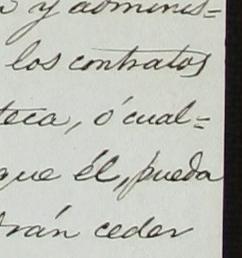 y adminis=
los contratos
teca, ó cual=
que él, pueda
drán ceder